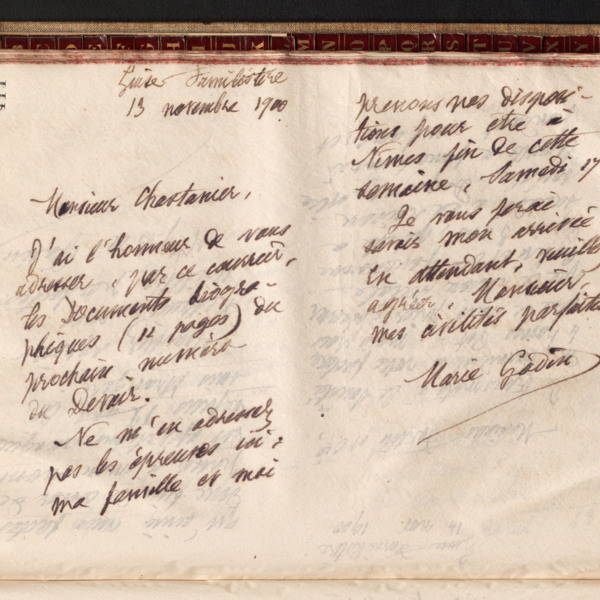 Guise Familistère
13 novembre 1900
Monsieur Chastanier,
J'ai l'honneur de vous
adresser, par ce courrier,
les Documents biogra-
phiques (12 pages) du
prochain numéro
du Devoir.
Ne m'en adressez
pas les épreuves ici :
ma famille et moi
prenons nos disposi-
tions pour être à
Nîmes fin de cette
semaine, Samedi 17
Je vous ferai
savoir mon arrivée
En attendant, veuillez
agréer, Monsieur,
mes civilités parfaites
Marie Godin
E D E F G H I J K L M N O P Q R S T U V X Y